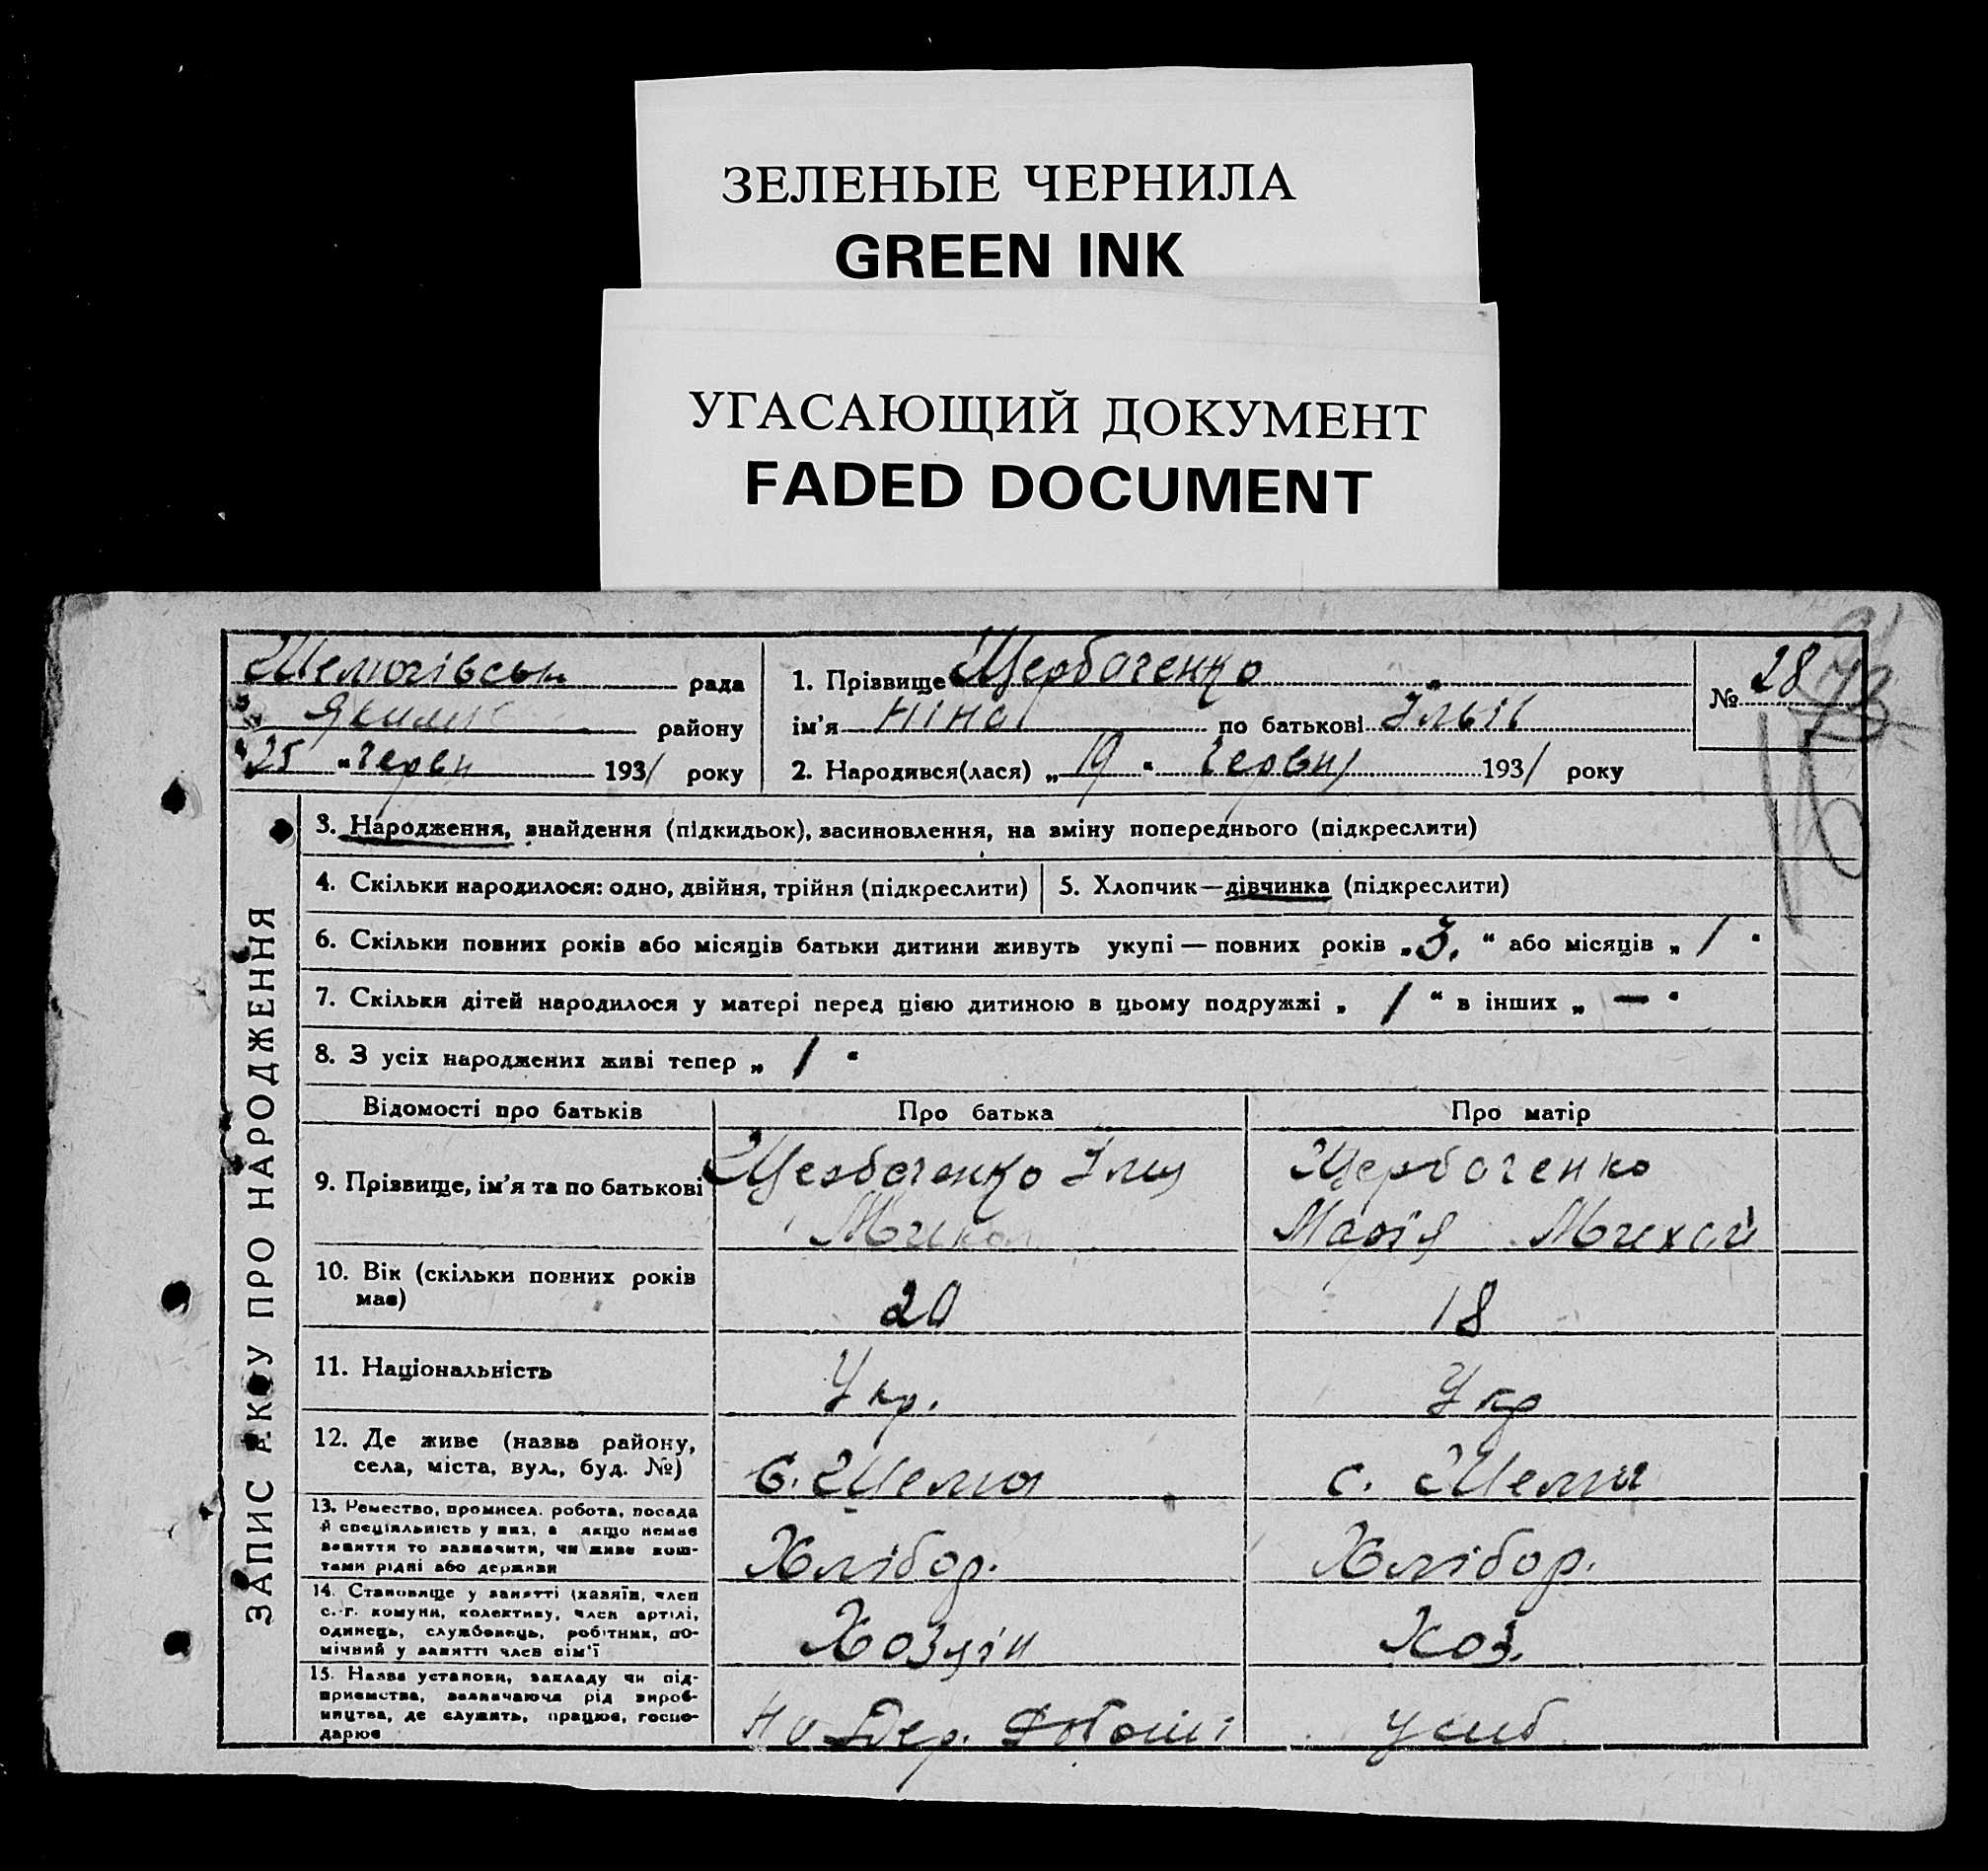 ЗЕЛЕНЫЕ ЧЕРНИЛА
GREEN INK
УГАСАЮЩИЙ ДОКУМЕНТ
FADED DOCUMENT
рада
району
25 " червн 1931 року
1. Прізвище Щербаченко
ім'я Ніна по батькові Ільїв
2. Народився(лася) „ 19 " червн 1931 року
№ 28
ЗАПИС АКТУ ПРО НАРОДЖЕННЯ
3. Народження, знайдення (підкидьок), засиновлення, на зміну попереднього (підкреслити)
4. Скільки народилося: одно, двійня, трійня (підкреслити)
5. Хлопчик—дівчинка (підкреслити)
6. Скільки повних років або місяців батьки дитини живуть укупі — повних років „ 3. " або місяців „ 1 "
7. Скільки дітей народилося у матері перед цією дитиною в цьому подружжі „ 1 " в інших „ — "
8. З усіх народжених живі тепер „ 1 "
Відомості про батьків Про батька Про матір
9. Прізвище, ім'я та по батькові
Щербаченко Ілля
Микол
Щербаченко
Марія Михай
10. Вік (скільки повних років
має)
20
18
11. Національність
Укр.
Укр
12. Де живе (назва району,
села, міста, вул., буд. №)
с. Шелюг
с. Шелюг
13. Ремество, промисел, робота, посада
й спеціяльність у них, а якщо немає
заняття то зазначити, чи живе кош-
тами рідні або держави
Хлібор.
Хлібор.
14. Становище у занятті (хазяїн, член
с.-г. комуни, колективу, член артілі,
одинець, службовець, робітник, по-
мічний у занятті член сім'ї
Хозяїн
Хоз.
15. Назва установи, закладу чи під-
приємства, зазначаючи рід вироб-
ництва, де служить, працює, госпо-
дарює